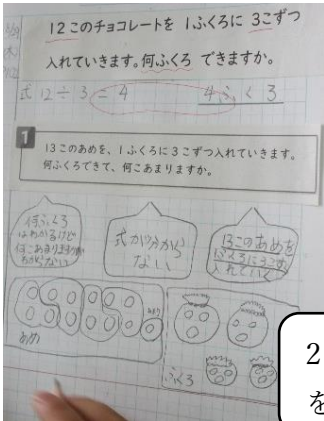 12このチョコレートを1ふくろに3こずつ
入れていきます。何ふくろできますか。
式 12÷3=4 4ふくろ
1
13このあめを、1ふくろに3こずつ入れていきます。
何ふくろできて、何こあまりますか。
何ふくろ
はわかるけど
何こあまりますか
わからない
式が分から
ない
13このあめを
1ふくろに3こずつ
入れていく
あめ
ふくろ
2
を